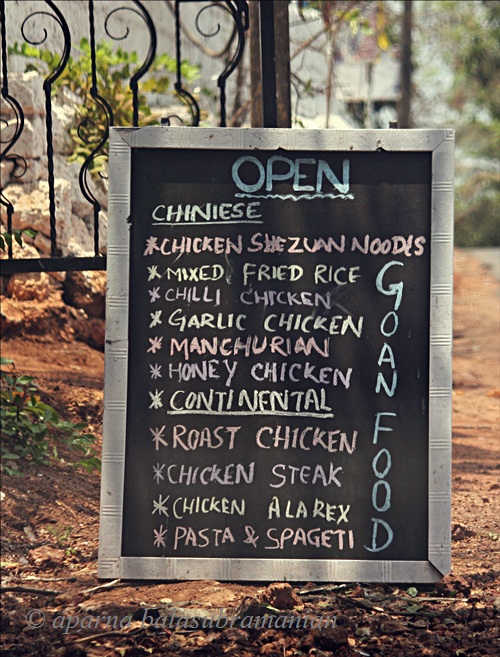 OPEN
CHINIESE
*CHICKEN SHEZUAN NOODLS
* MIXED FRIED RICE
* CHILLI CHICKEN
* GARLIC CHICKEN
* MANCHURIAN
* HONEY CHICKEN
* CONTINENTAL
* ROAST CHICKEN
*CHICKEN STEAK
*CHICKEN ALAREX
* PASTA & SPAGETI
GOAN FOOD
© aparna balasubramanian